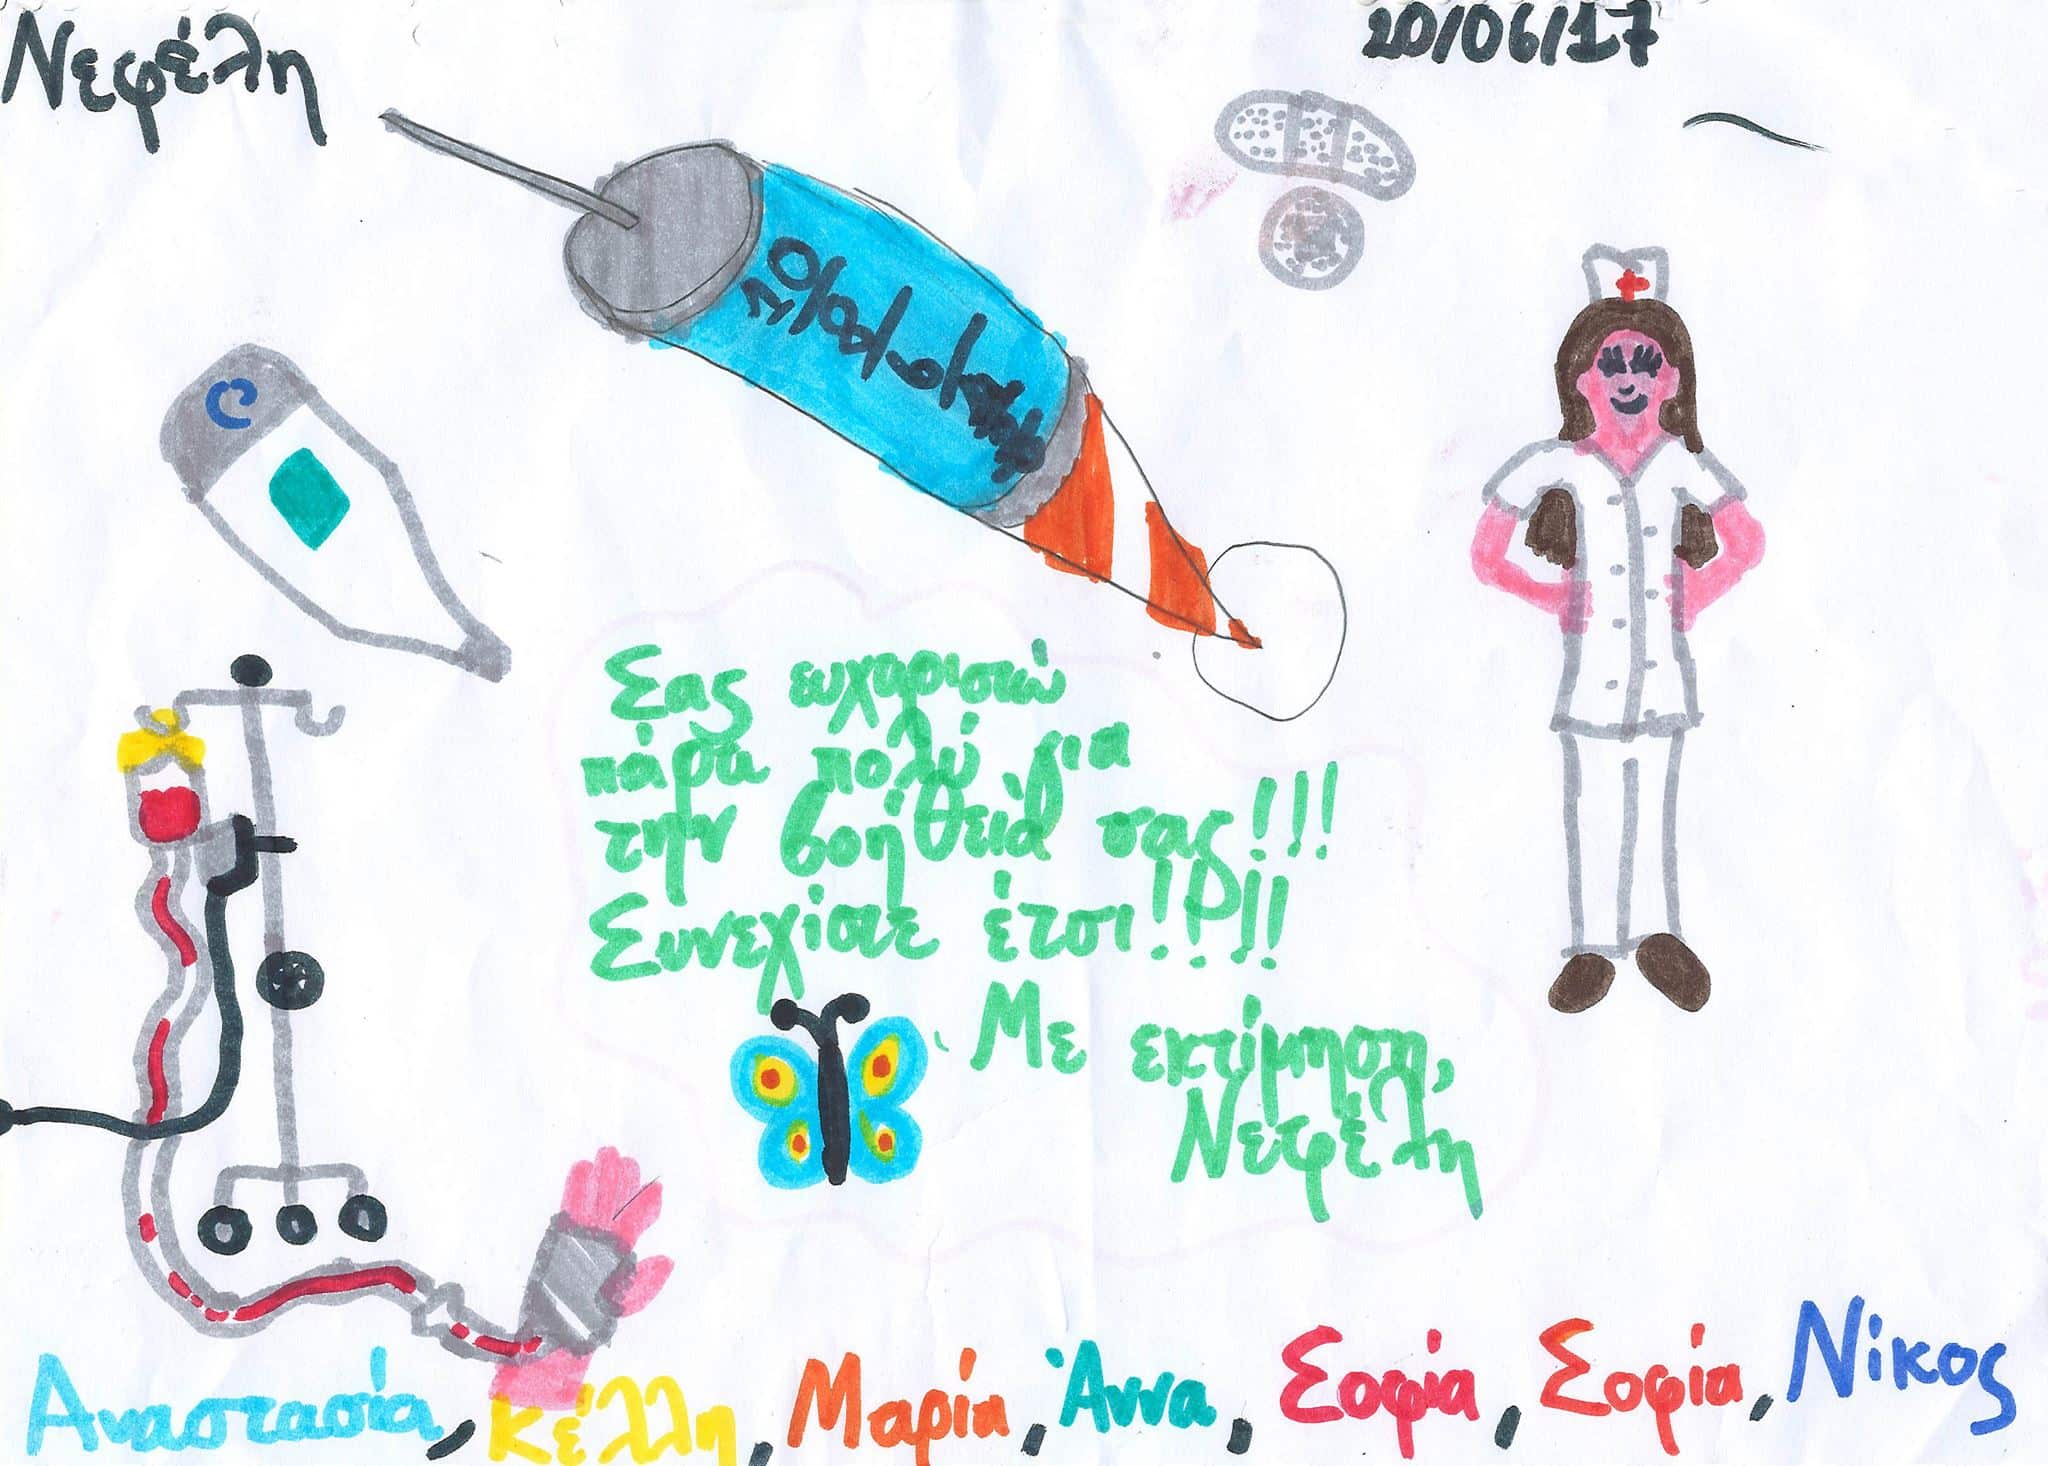 Νεφέλη
20/06/17
Σας ευχαριστώ
πάρα πολύ για
την βοήθειά σας!!!
Συνεχίστε έτσι!!!!
Με εκτίμηση,
Νεφέλη
Αναστασία, Κέλλη, Μαρία, Άννα, Σοφία, Σοφία, Νίκος